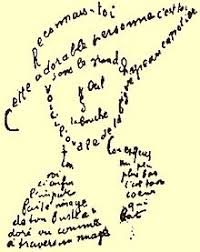 Reconnais-toi
Cette adorable personne c'est toi
Sous le grand chapeau canotier
Œil
Nez
La bouche
Voici l'ovale de ta figure
Ton cou
Voici enfin
l'imparfaite image
de ton buste a
doré vu comme
à travers un nuage
Un peu
plus bas
c'est ton
coeur
qui
bat